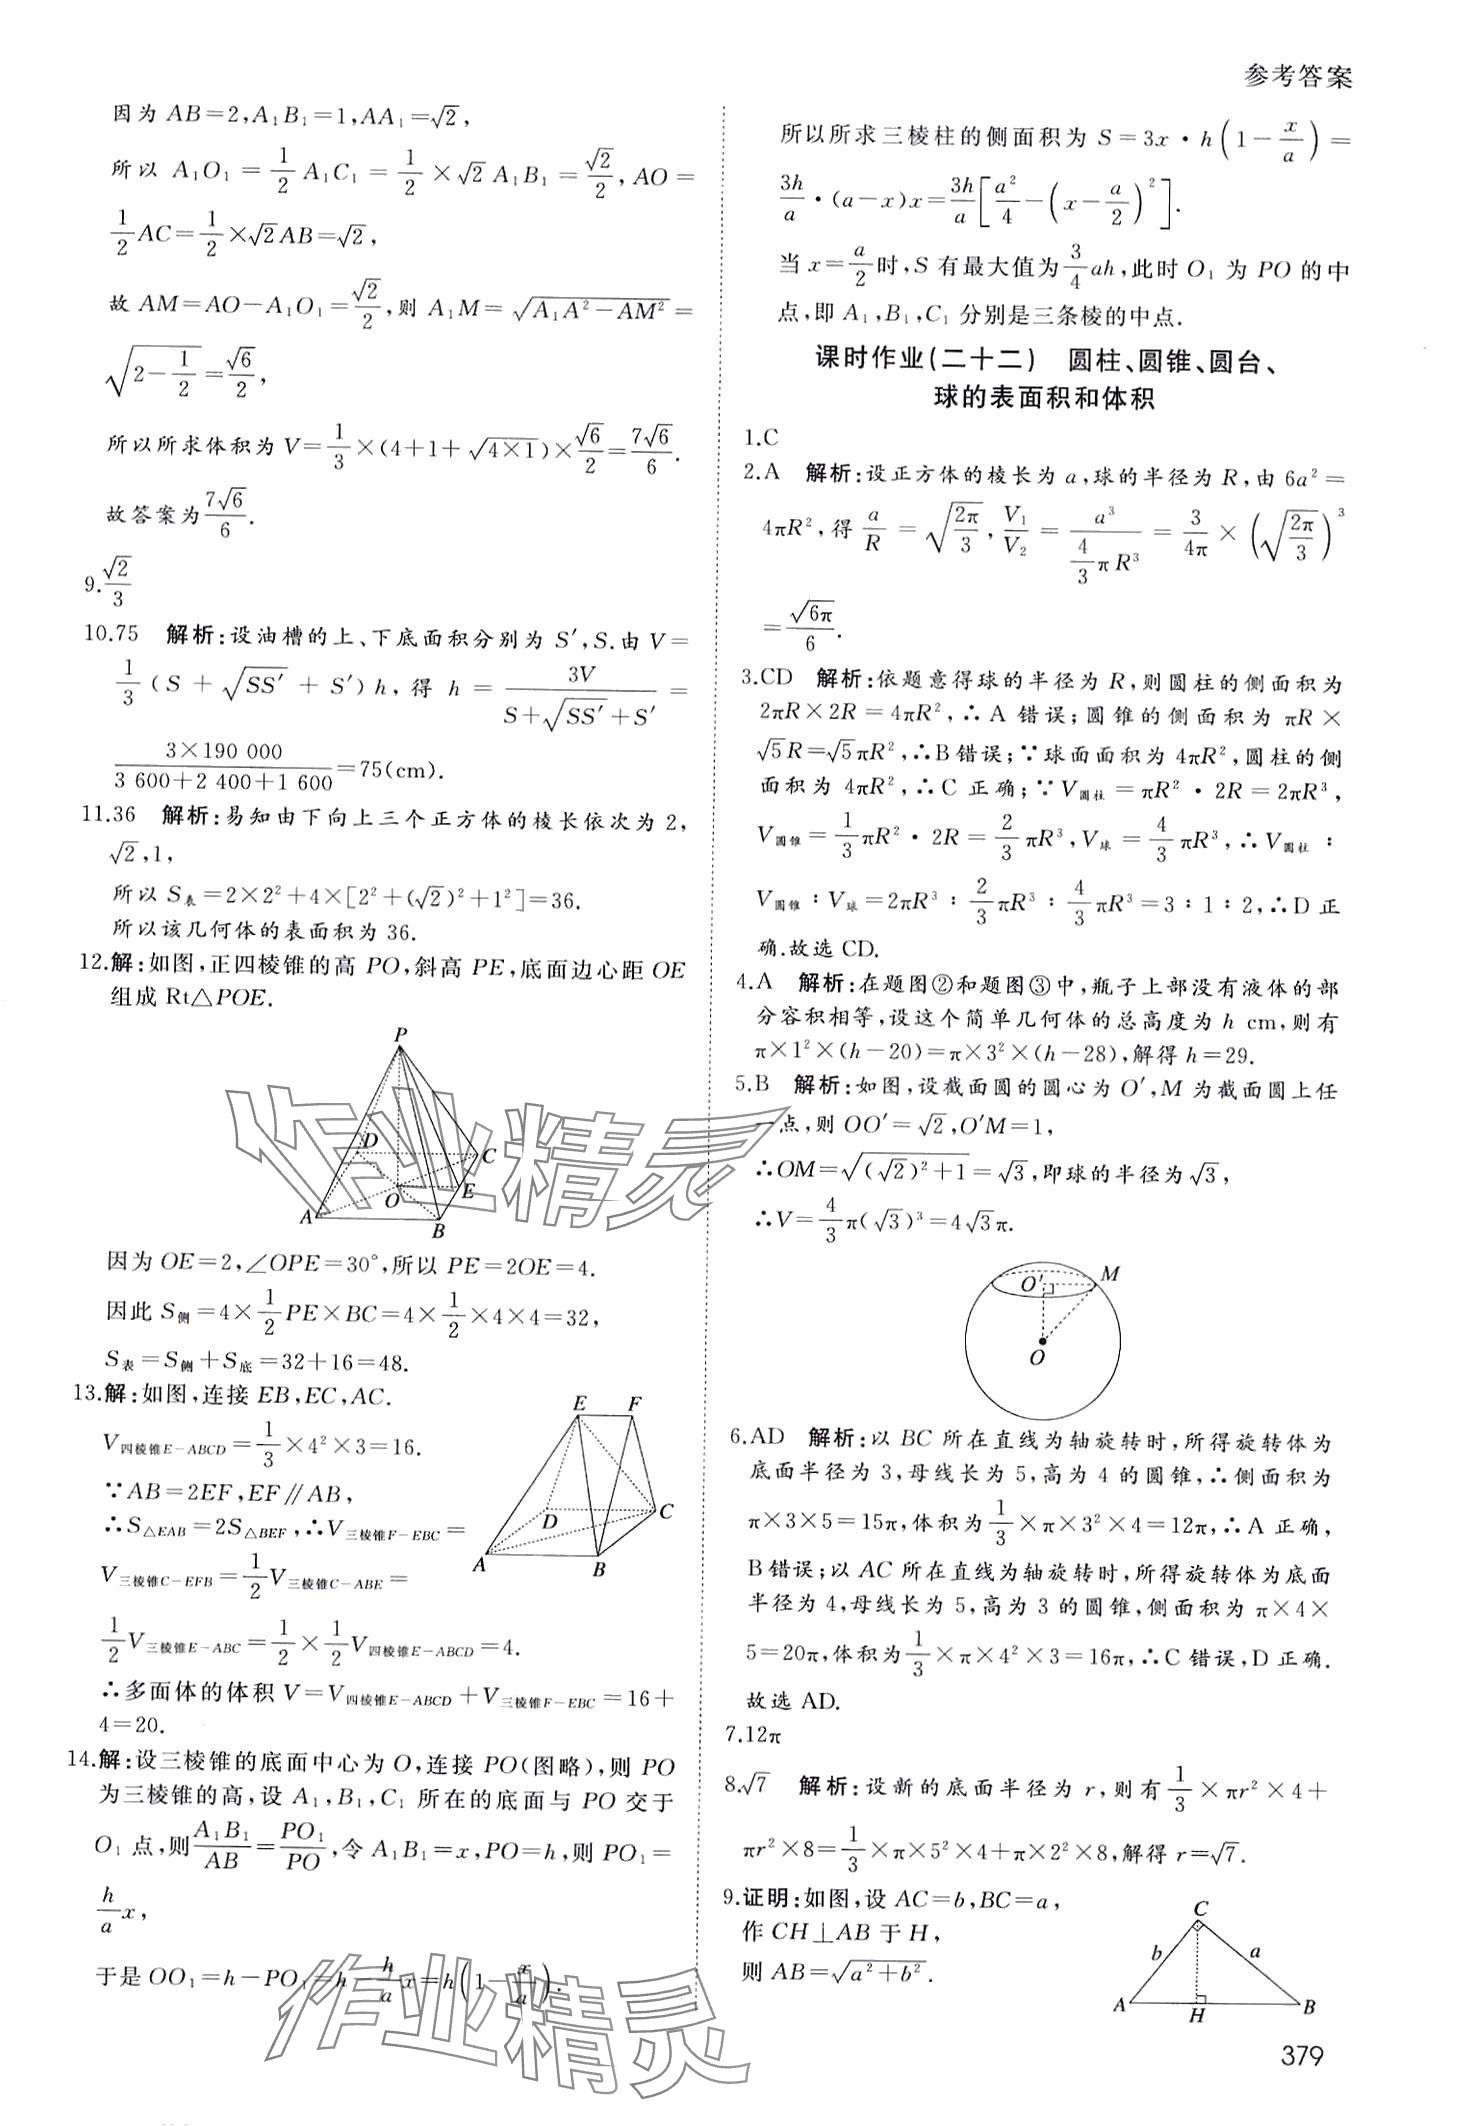 参考答案
因为 AB=2,A₁B₁=1,AA₁=√2,
所以 A₁O₁=1/2 A₁C₁=1/2×√2 A₁B₁=√2/2,AO=
1/2 AC=1/2×√2AB=√2,
故 AM=AO-A₁O₁=√2/2,则 A₁M=√(A₁A²-AM²)=
√(2-1/2)=√6/2,
所以所求体积为 V=1/3×(4+1+√(4×1))×√6/2=7√6/6.
故答案为7√6/6.
9.√2/3
10.75 解析:设油槽的上、下底面积分别为 S′,S.由 V=
1/3(S+√(SS′)+S′)h,得 h=3V/(S+√(SS′)+S′)=
(3×190 000)/(3 600+2 400+1 600)=75(cm).
11.36 解析:易知由下向上三个正方体的棱长依次为 2,
√2,1,
所以 S表=2×2²+4×[2²+(√2)²+1²]=36.
所以该几何体的表面积为 36.
12.解:如图,正四棱锥的高 PO,斜高 PE,底面边心距 OE
组成 Rt△POE.
P
D
C
O
E
A
B
因为 OE=2,∠OPE=30°,所以 PE=2OE=4.
因此 S侧=4×1/2 PE×BC=4×1/2×4×4=32,
S表=S侧+S底=32+16=48.
13.解:如图,连接 EB,EC,AC.
V四棱锥E-ABCD=1/3×4²×3=16.
∵AB=2EF,EF∥AB,
∴S△EAB=2S△BEF,∴V三棱锥F-EBC=
V三棱锥C-EFB=1/2 V三棱锥C-ABE=
1/2 V三棱锥E-ABC=1/2×1/2 V四棱锥E-ABCD=4.
∴多面体的体积 V=V四棱锥E-ABCD+V三棱锥F-EBC=16+
4=20.
E F
D
C
A
B
14.解:设三棱锥的底面中心为 O,连接 PO(图略),则 PO
为三棱锥的高,设 A₁,B₁,C₁ 所在的底面与 PO 交于
O₁ 点,则A₁B₁/AB=PO₁/PO,令 A₁B₁=x,PO=h,则 PO₁=
h/a x,
于是 OO₁=h-PO₁=h-h/a x=h(1-x/a).
所以所求三棱柱的侧面积为 S=3x·h(1-x/a)=
3h/a·(a-x)x=3h/a[a²/4-(x-a/2)²].
当 x=a/2时,S 有最大值为3/4 ah,此时 O₁ 为 PO 的中
点,即 A₁,B₁,C₁ 分别是三条棱的中点.
课时作业(二十二) 圆柱、圆锥、圆台、
球的表面积和体积
1.C
2.A 解析:设正方体的棱长为 a,球的半径为 R,由 6a²=
4πR²,得 a/R=√(2π/3),V₁/V₂=a³/(4/3 πR³)=3/4π×(√(2π/3))³
=√(6π)/6.
3.CD 解析:依题意得球的半径为 R,则圆柱的侧面积为
2πR×2R=4πR²,∴A 错误;圆锥的侧面积为 πR×
√5R=√5πR²,∴B错误;∵球面面积为 4πR²,圆柱的侧
面积为 4πR²,∴C 正确;∵V圆柱=πR²·2R=2πR³,
V圆锥=1/3 πR²·2R=2/3 πR³,V球=4/3 πR³,∴V圆柱:
V圆锥:V球=2πR³:2/3 πR³:4/3 πR³=3:1:2,∴D 正
确.故选 CD.
4.A 解析:在题图②和题图③中,瓶子上部没有液体的部
分容积相等,设这个简单几何体的总高度为 h cm,则有
π×1²×(h-20)=π×3²×(h-28),解得 h=29.
5.B 解析:如图,设截面圆的圆心为 O′,M 为截面圆上任
一点,则 OO′=√2,O′M=1,
∴OM=√((√2)²+1)=√3,即球的半径为√3,
∴V=4/3 π(√3)³=4√3π.
O′ M
O
6.AD 解析:以 BC 所在直线为轴旋转时,所得旋转体为
底面半径为 3,母线长为 5,高为 4 的圆锥,∴侧面积为
π×3×5=15π,体积为1/3×π×3²×4=12π,∴A 正确,
B错误;以 AC 所在直线为轴旋转时,所得旋转体为底面
半径为 4,母线长为 5,高为 3 的圆锥,侧面积为 π×4×
5=20π,体积为1/3×π×4²×3=16π,∴C 错误,D 正确.
故选 AD.
7.12π
8.√7 解析:设新的底面半径为 r,则有1/3×πr²×4+
πr²×8=1/3×π×5²×4+π×2²×8,解得 r=√7.
9.证明:如图,设 AC=b,BC=a,
作 CH⊥AB 于 H,
则 AB=√(a²+b²).
C
b a
A H B
作业精灵
作业精灵
379